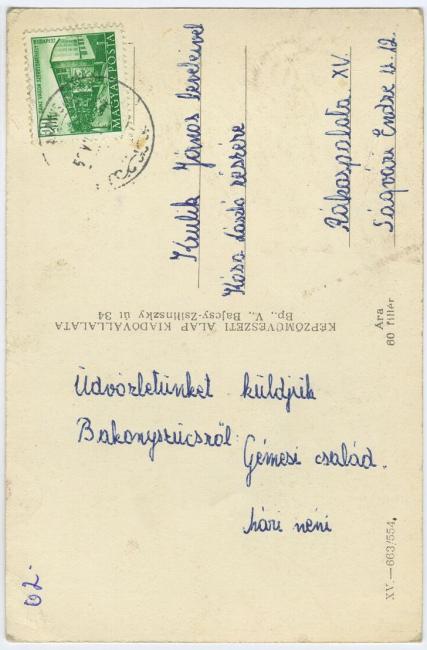 MAGYAR POSTA
Krulik János levelével
Kósa László részére
Rákospalota XV.
Ságvári Endre u. 12.
KÉPZŐMŰVÉSZETI ALAP KIADÓVÁLLALATA
Bp., V., Bajcsy-Zsilinszky út 34
Ára
60 fillér
Üdvözletünket küldjük
Bakonyszücsről
Gémesi család.
Mári néni
XV.—663/554.
62.